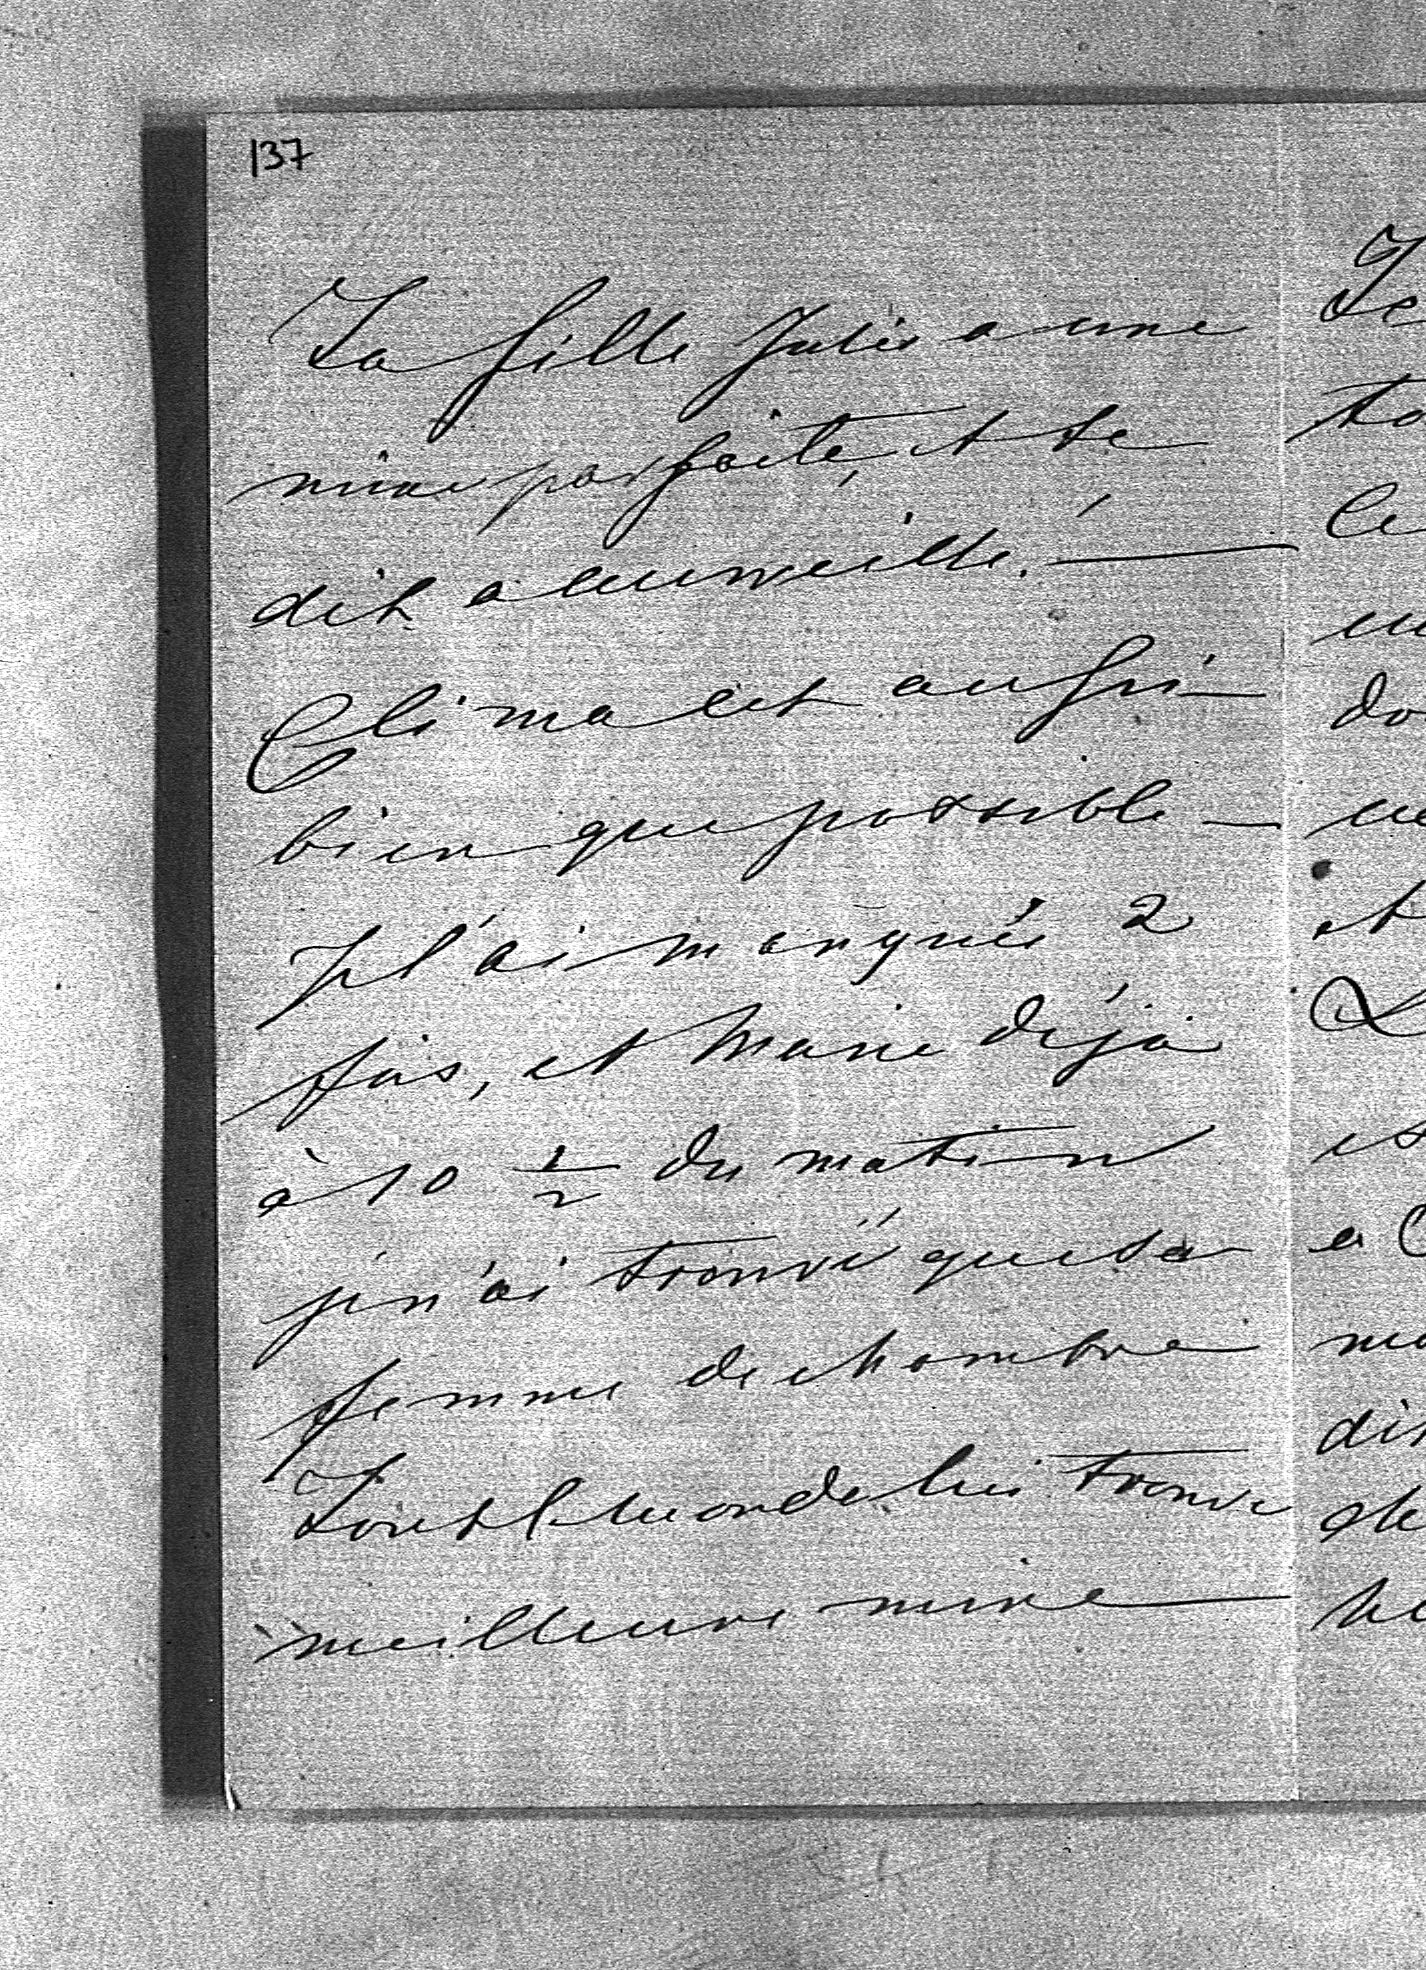 137
Ta fille Julie a une
mine parfaite, et se
dit a merveille. —
Clima est aussi
bien que possible —
Je l'ai manquée 2
fois, et Marie déjà
à 10 1/2 du matin
je n'ai trouvé que sa
femme de chambre
Tout le monde lui trouve
meilleure mine —